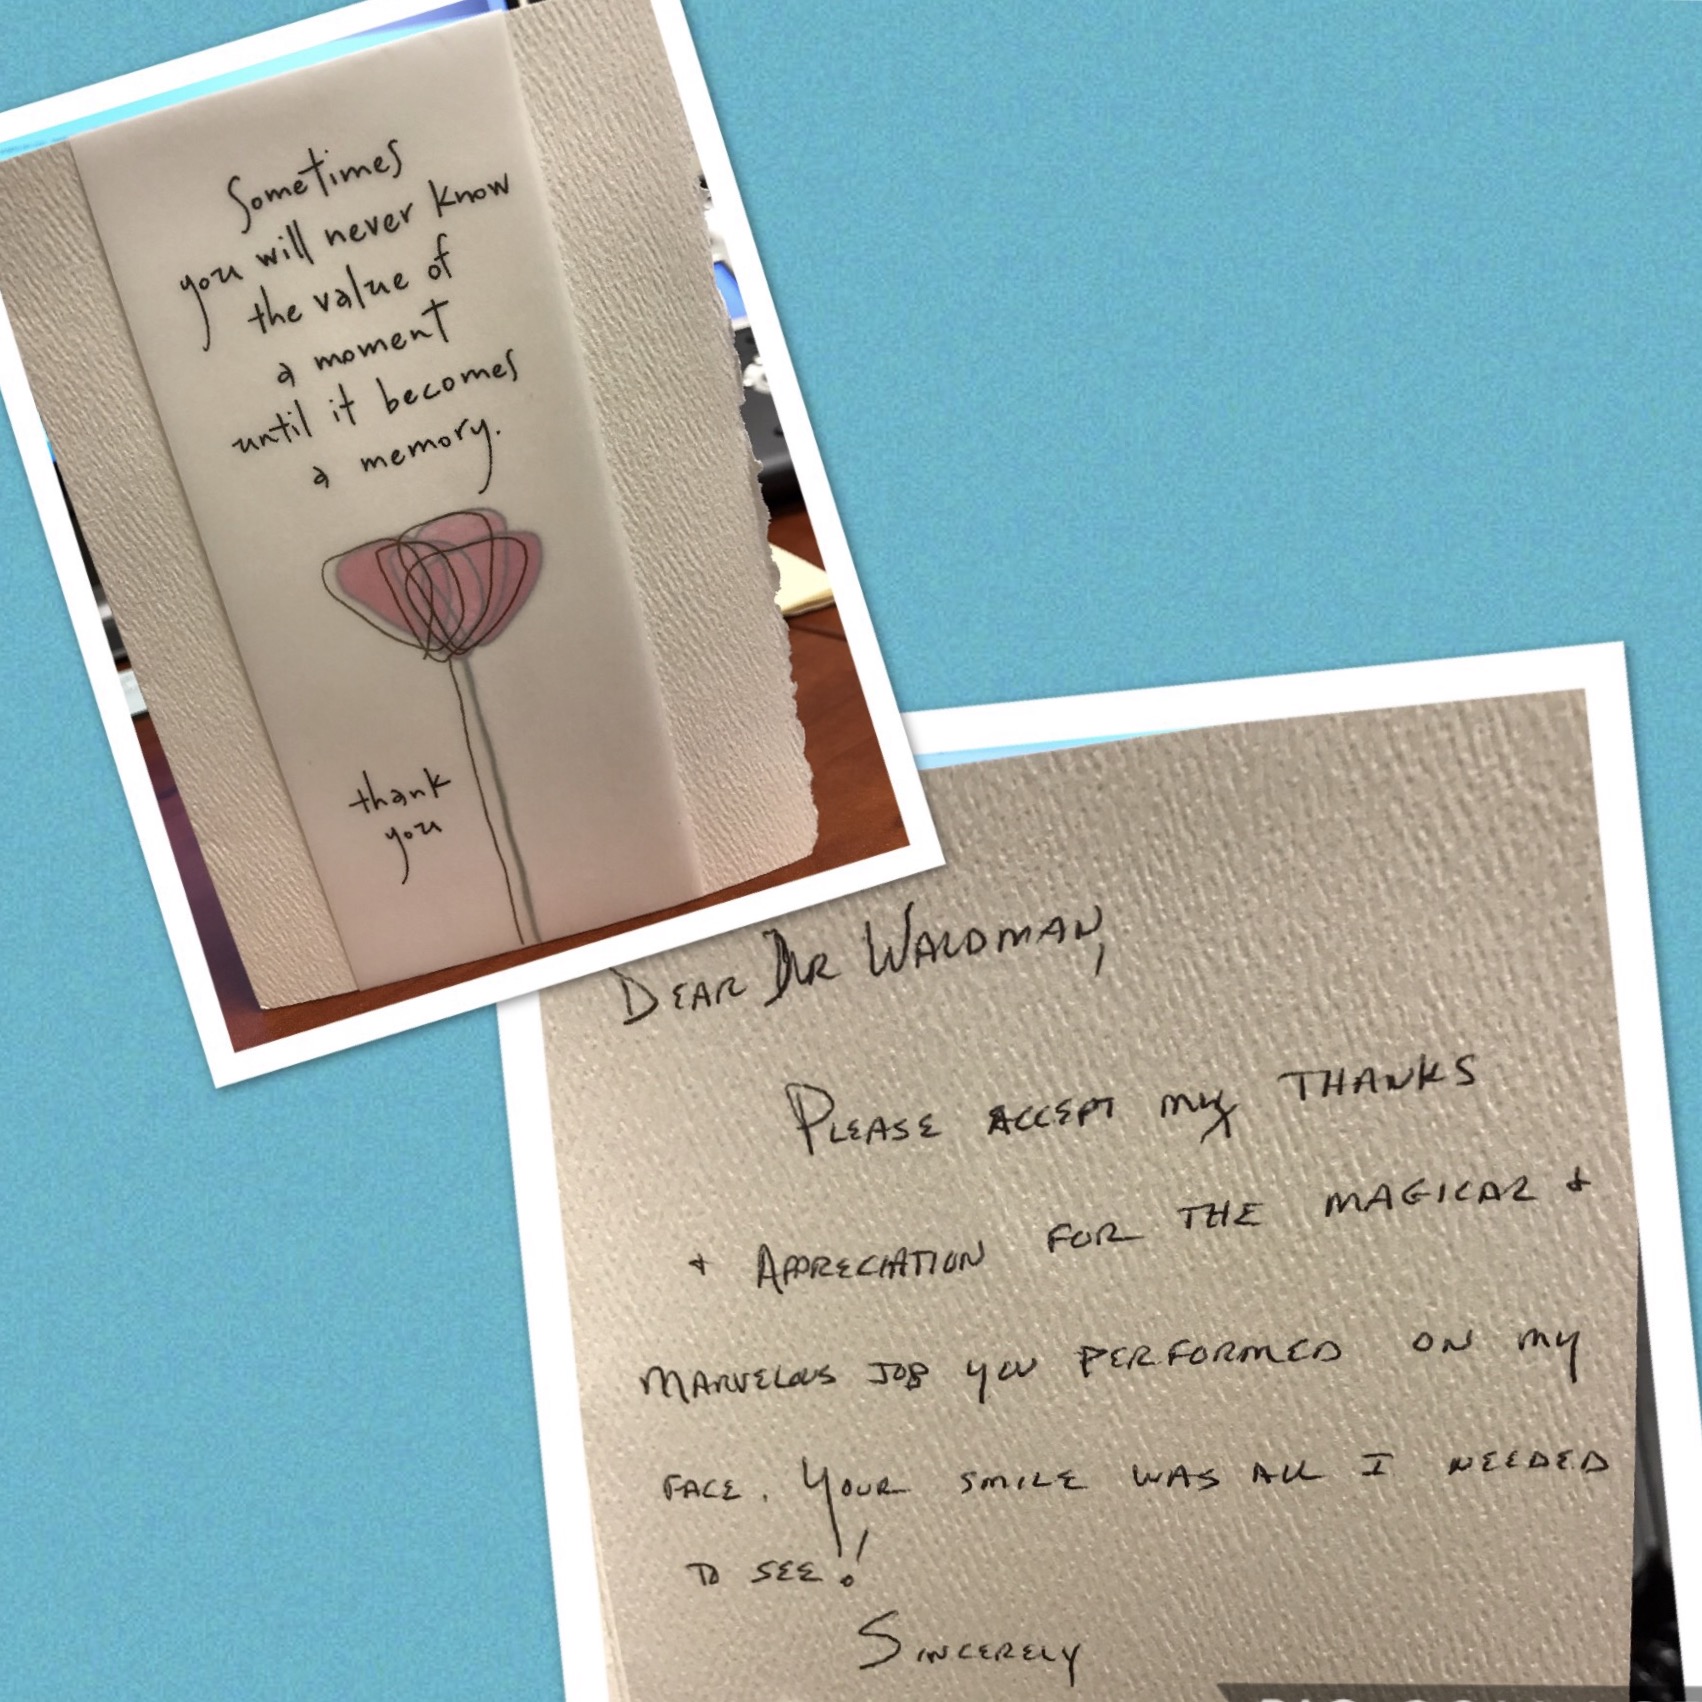 Sometimes
you will never know
the value of
a moment
until it becomes
a memory.
thank
you
DEAR DR WALDMAN,
PLEASE ACCEPT MY THANKS
+ APPRECIATION FOR THE MAGICAL +
MARVELOUS JOB YOU PERFORMED ON MY
FACE. YOUR SMILE WAS ALL I NEEDED
TO SEE!
SINCERELY